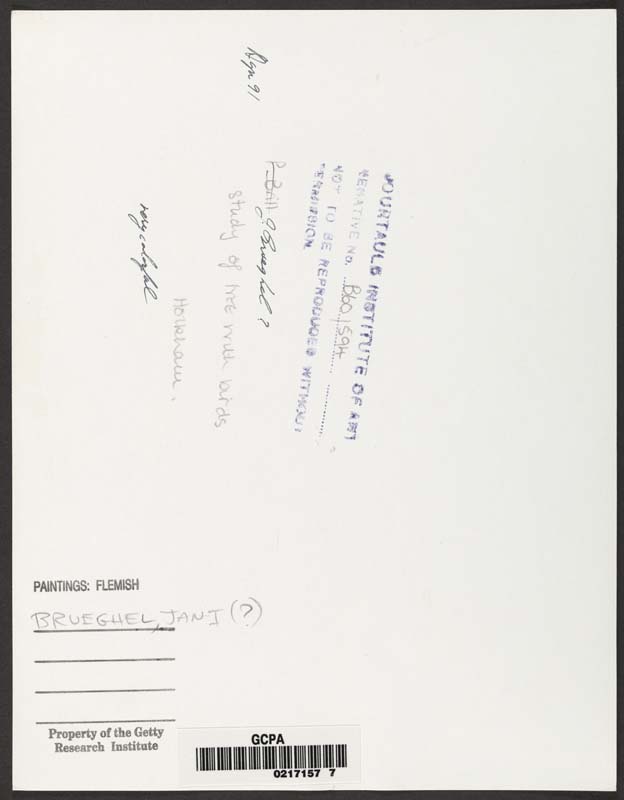 Agn 91
COURTAULD INSTITUTE OF ART
NEGATIVE NO. B60/594
NOT TO BE REPRODUCED WITHOUT
PERMISSION
P. Brill J. Brueghel?
Study of tree with birds
very colorful
Holkham.
PAINTINGS: FLEMISH
BRUEGHEL, JAN I (?)
Property of the Getty
Research Institute
GCPA
0217157 7